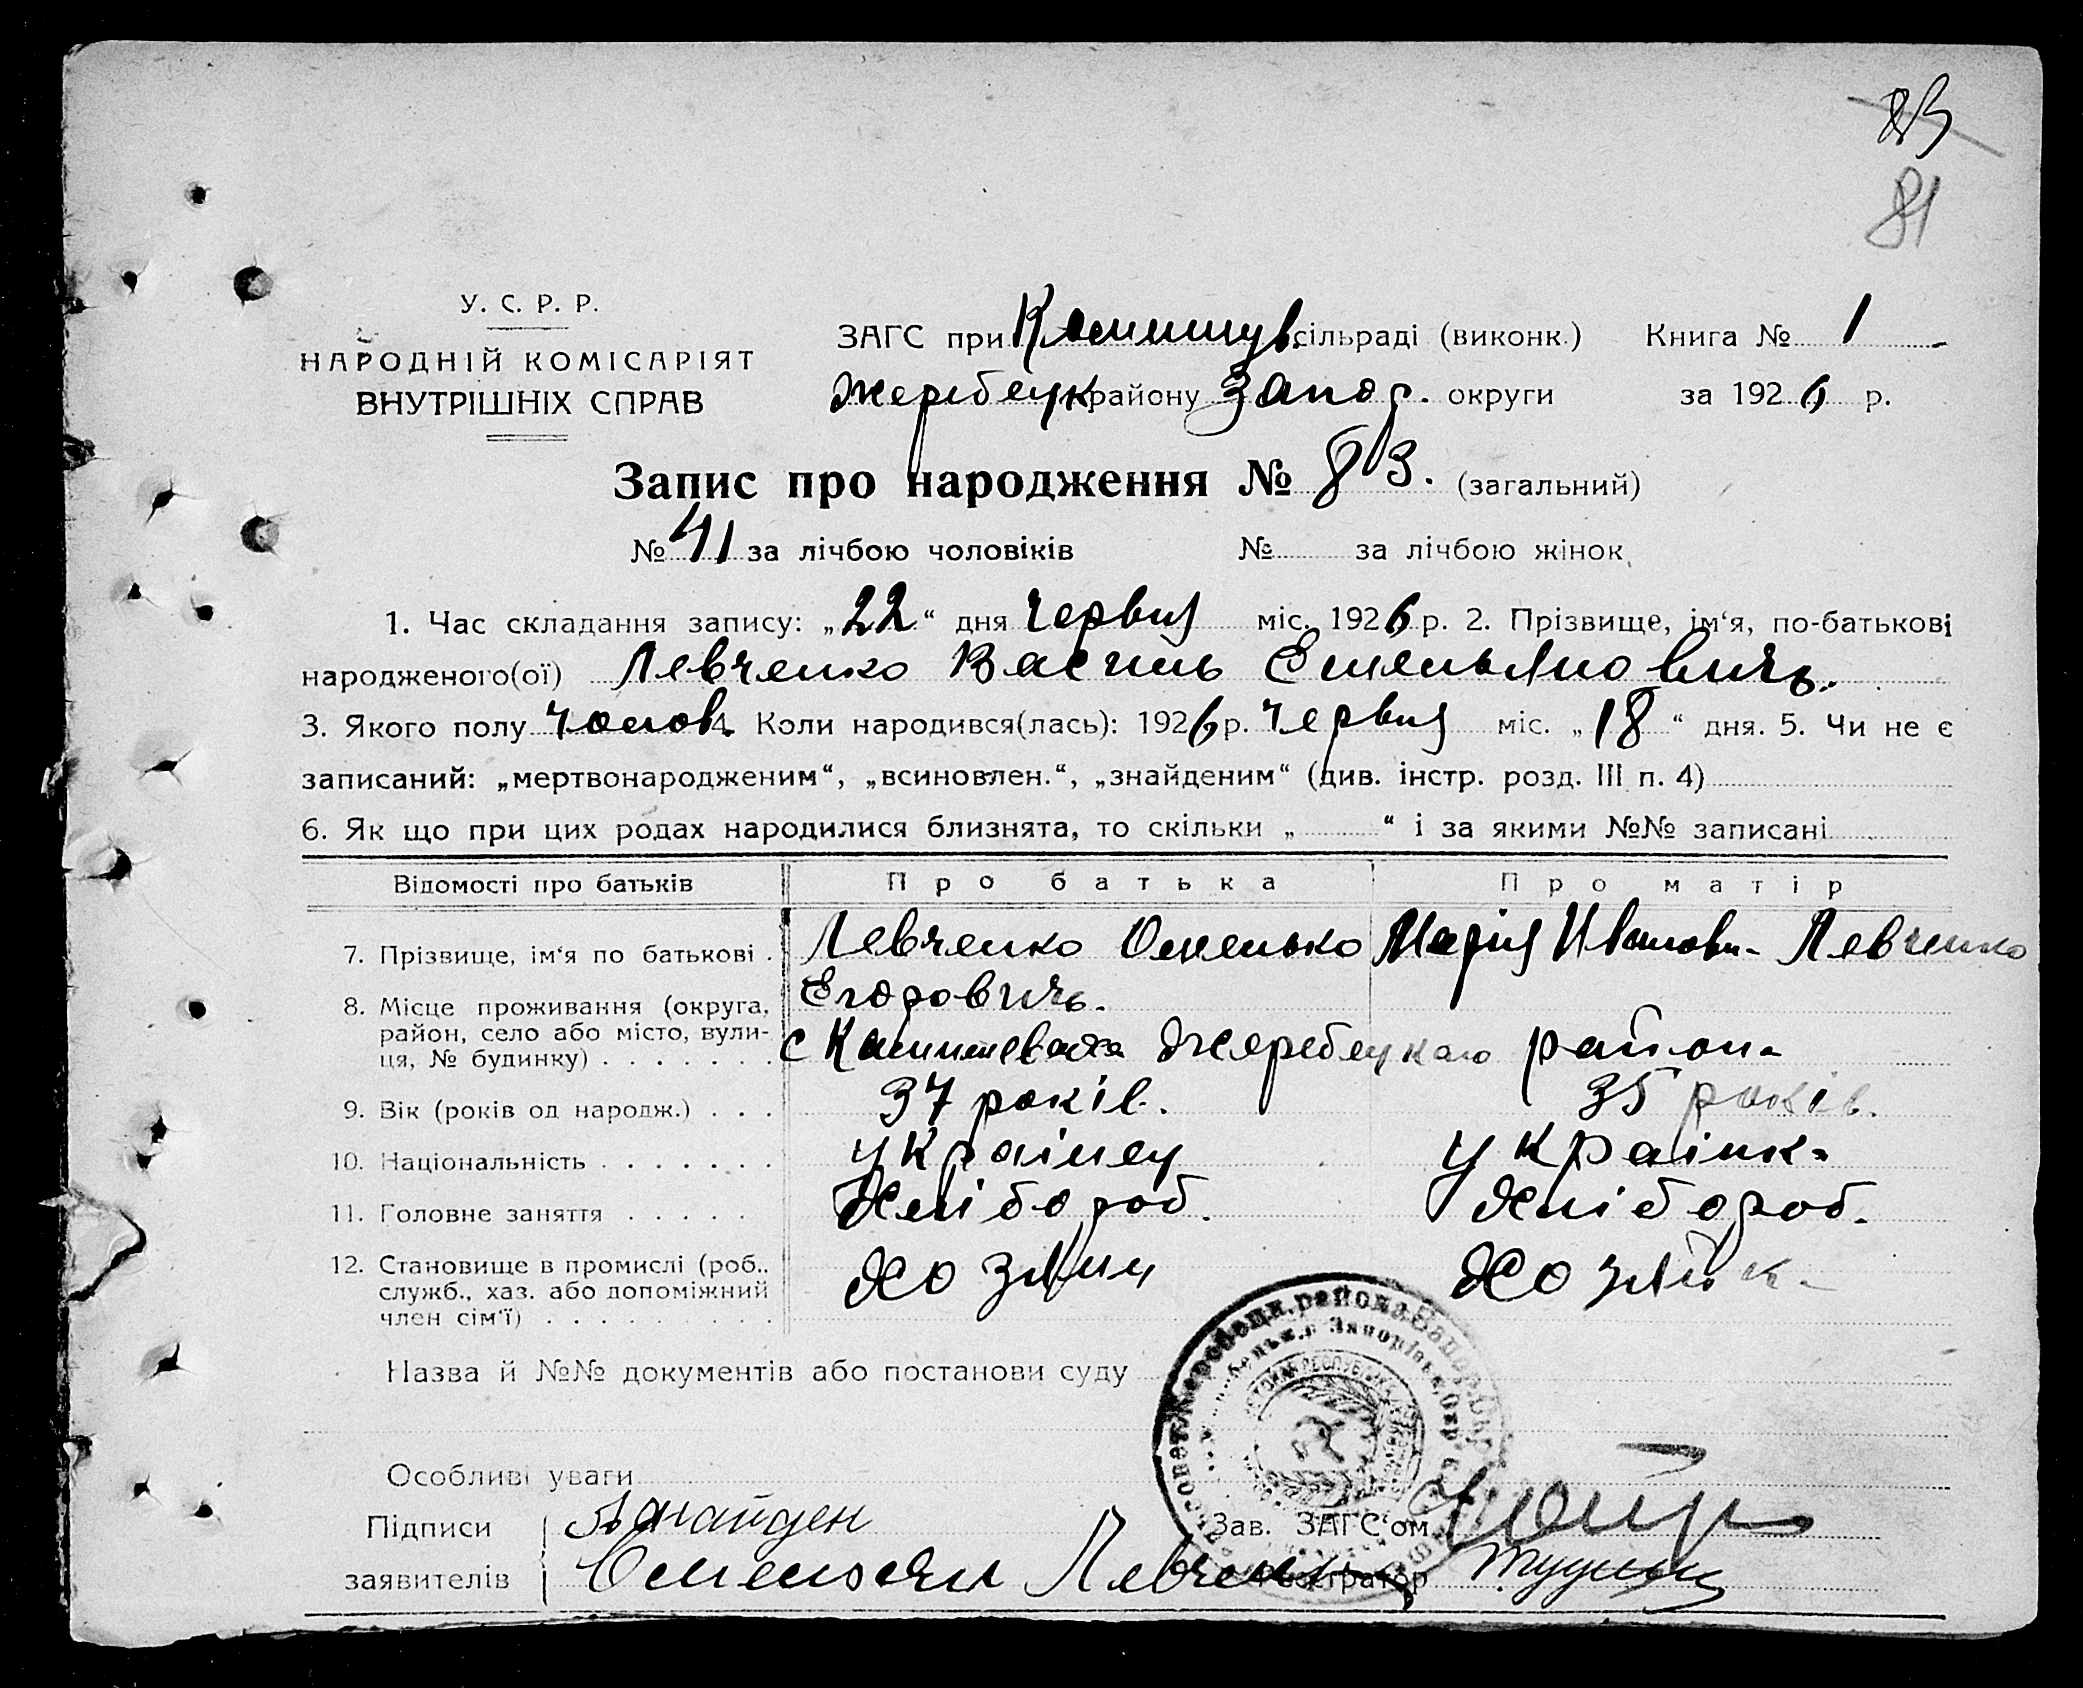 83
81
У. С. Р. Р.
НАРОДНІЙ КОМІСАРІЯТ
ВНУТРІШНІХ СПРАВ
ЗАГС при Комишув. сільраді (виконк.) Книга № 1
Жеребецк району Запор. округи за 1926 р.
Запис про народження № 83. (загальний)
№ 41 за лічбою чоловіків № за лічбою жінок
1. Час складання запису: „22“ дня Червня міс. 1926 р. 2. Прізвище, ім‘я, по-батькові
народженого(ої) Левченко Василь Емельяновичь.
3. Якого полу чолов. 4. Коли народився(лась): 1926 р. Червня міс. „18“ дня. 5. Чи не є
записаний: „мертвонародженим“, „всиновлен.“, „знайденим“ (див. інстр. розд. III п. 4)
6. Як що при цих родах народилися близнята, то скільки „ “ і за якими №№ записані
Відомості про батьків Про батька Про матір
7. Прізвище, ім‘я по батькові . Левченко Омелько Марія Ивановн- Левченко
Егоровичь.
8. Місце проживання (округа,
район, село або місто, вули-
ця, № будинку) . . . . . . . с Камишеваха Жеребецкаго района
9. Вік (років од народж.) . . . 37 років. 35 років.
10. Національність . . . . . . . українец українка
11. Головне заняття . . . . . Хлібороб. Хлібороб.
12. Становище в промислі (роб.. Хозяин Хозяйк-
служб., хаз. або допоміжний
член сім‘ї) . . . . . . . . .
Назва й №№ документів або постанови суду
Особливі уваги
Підписи
заявителів Омельян Левченко
Зав. ЗАГС‘ом
Реєстратор